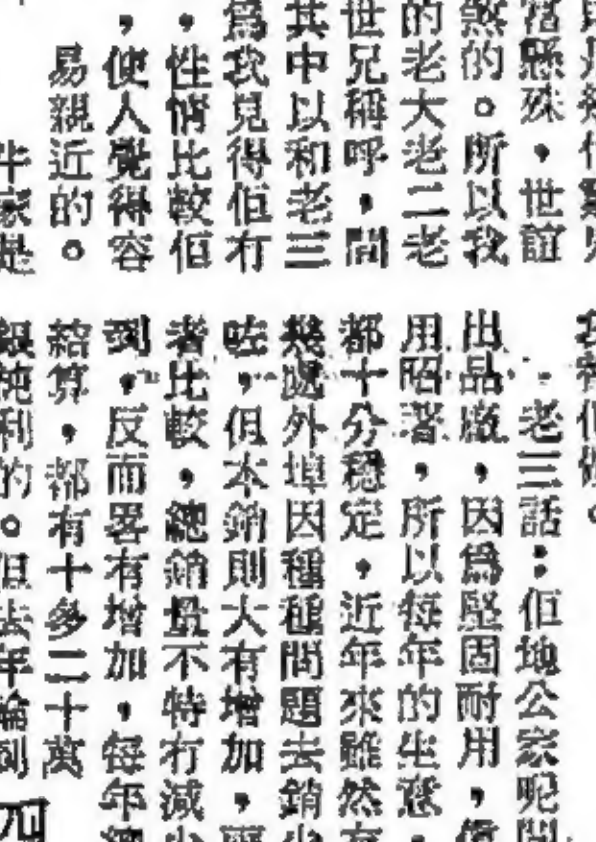 當懸殊，世誼
煞的。所以我
的老大老二老
世兄稱呼，間
其中以和老三
爲我見得佢冇
，性情比較佢
，使人覺得容
易親近的。
老三話：佢哋公家呢間
出品廠，因爲堅固耐用，
用昭著，所以每年的生意，
都十分穩定，近年來雖然
幾處外埠因種種問題去銷少
咗，但本銷則大有增加，
者比較，總銷量不特冇減少
到，反而畧有增加，每年
結算，都有十多二十萬
純利的。但去年
四